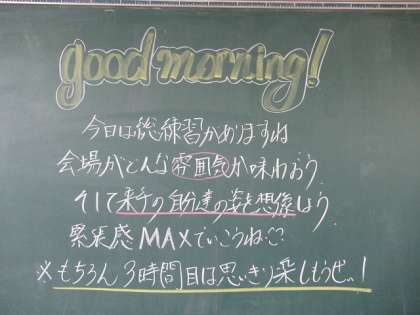 good morning!
今日は総練習がありますね
会場がどんな雰囲気か味わおう
そして来年の自分達の姿を想像しよう
緊張感MAXでいこうね
※もちろん3時間目は思いきり楽しもうぜぃ!